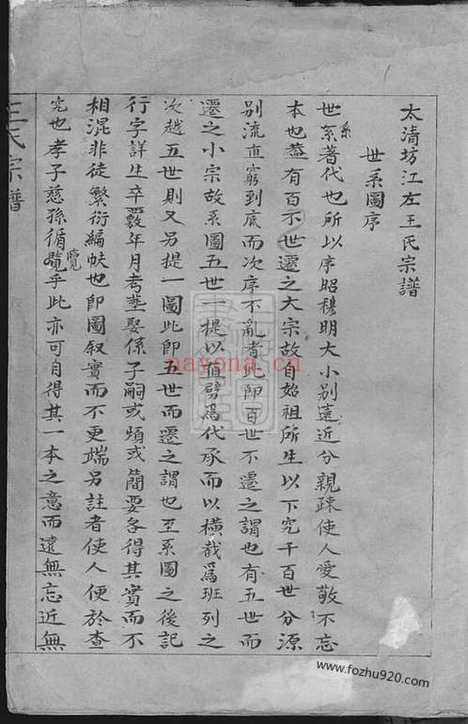 太清坊江左王氏宗譜
世系圖序
世系系著代也所以序昭穆明大小别遠近分親疎使人愛敬不忘
本也蓋有百不世遷之大宗故自始祖所生以下究千百世分源
别流直窮到底而次序不亂者此即百世不遷之謂也有五世而
遷之小宗故系圖五世一提以直劈為代承而以橫裁為班列之
次越五世則又另提一圖此即五世而遷之謂也至系圖之後記
行字詳生卒覈年月考塟娶係子嗣或煩或簡要各得其實而不
相混非徒繁衍編帙也即圖叙實而不更端另註者使人便於查
究也孝子慈孫循覽覽乎此亦可自得其一本之意而遠無忘近無
王氏宗譜
nayona.cn
www.fozhu920.com